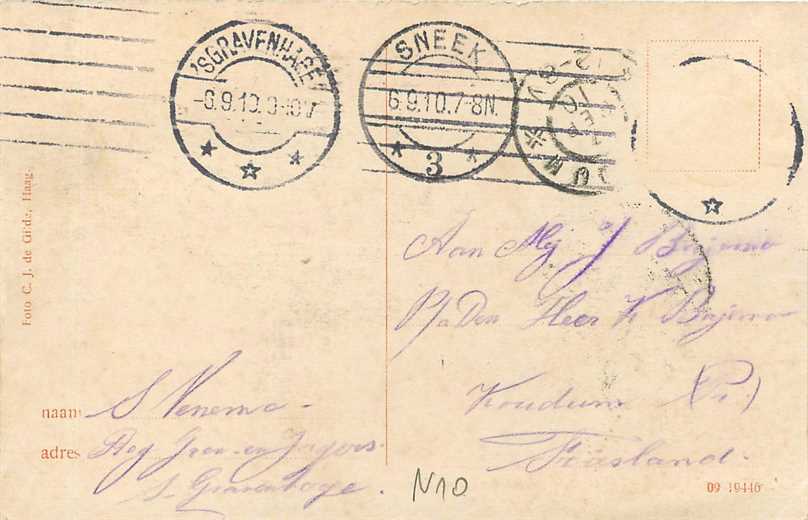 'SGRAVENHAGE
-6.9.10.9-10V
SNEEK
6.9.10.7-8N.
3
Foto C. J. de Gilde, Haag.
Aan Mej J Bajema
P/a Den Heer K Bajema
Koudum (Fr.)
Friesland.
naam S Venema -
adres Reg Gren. en Jagers.
s Gravenhage.
N10
09 19446